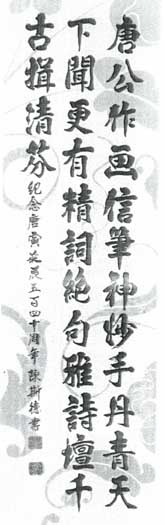 唐公作画信筆神妙手丹青天
下聞更有精詞絶句雅詩壇千
古揖清芬
紀念唐寅誕辰五百四十周年 陳斯德書